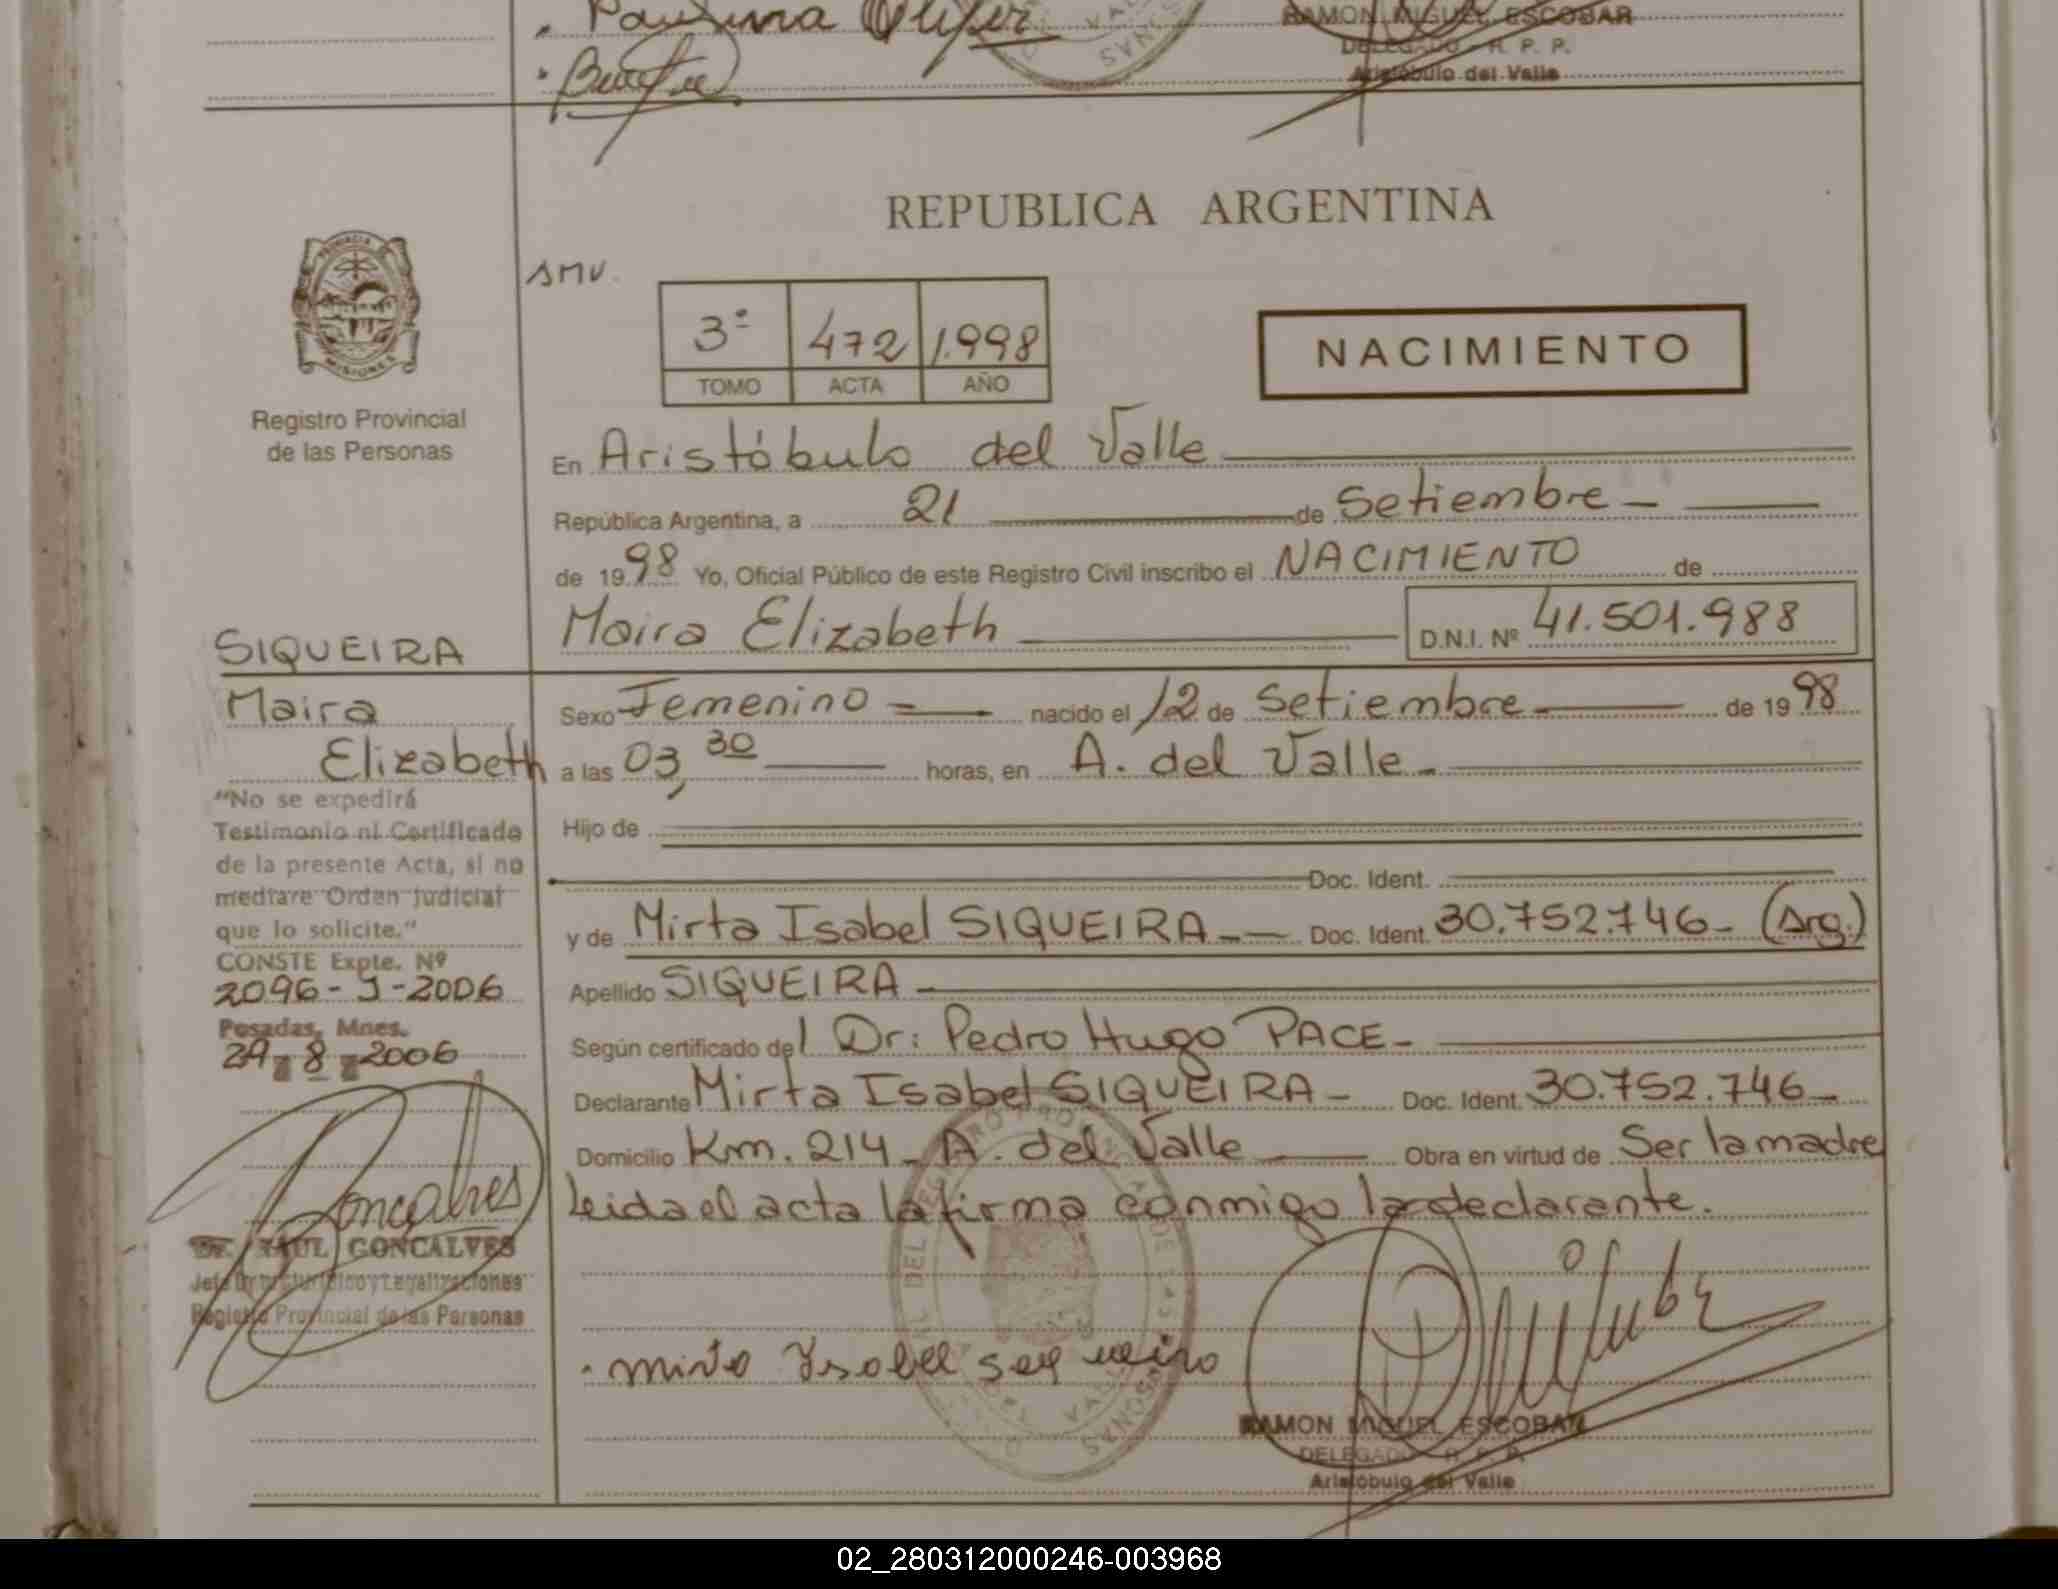 Paulina
RAMON MIGUEL ESCOBAR
DELEGADO - R. P. P.
Aristóbulo del Valle
REPUBLICA ARGENTINA
PROVINCIA DE
MISIONES
SMV.
3º 472 1.998
TOMO ACTA AÑO
NACIMIENTO
Registro Provincial
de las Personas
En Aristóbulo del Valle
República Argentina, a 21 de Setiembre
de 1998 Yo, Oficial Público de este Registro Civil inscribo el NACIMIENTO de
Maira Elizabeth D.N.I. Nº 41.501.988
SIQUEIRA
Maira
Elizabeth
Sexo Femenino nacido el 12 de Setiembre de 1998
a las 03,30 horas, en A. del Valle
"No se expedirá
Testimonio ni Certificado
de la presente Acta, si no
mediare Orden Judicial
que lo solicite."
CONSTE Expte. Nº
2096-J-2006
Posadas, Mnes.
29 8 2006
Hijo de
Doc. Ident.
y de Mirta Isabel SIQUEIRA Doc. Ident. 30.752.746 (Arg.)
Apellido SIQUEIRA
Según certificado del Dr: Pedro Hugo PACE
Declarante Mirta Isabel SIQUEIRA Doc. Ident. 30.752.746
Domicilio Km. 214 A. del Valle Obra en virtud de Ser la madre
Leida el acta la firma conmigo la declarante.
Goncalves
Dr. RAUL GONCALVES
Jefe Dpto. Jurídico y Legalizaciones
Registro Provincial de las Personas
Mirta Isabel
RAMON MIGUEL ESCOBAR
DELEGADO R. P. P.
Aristóbulo del Valle
02_280312000246-003968